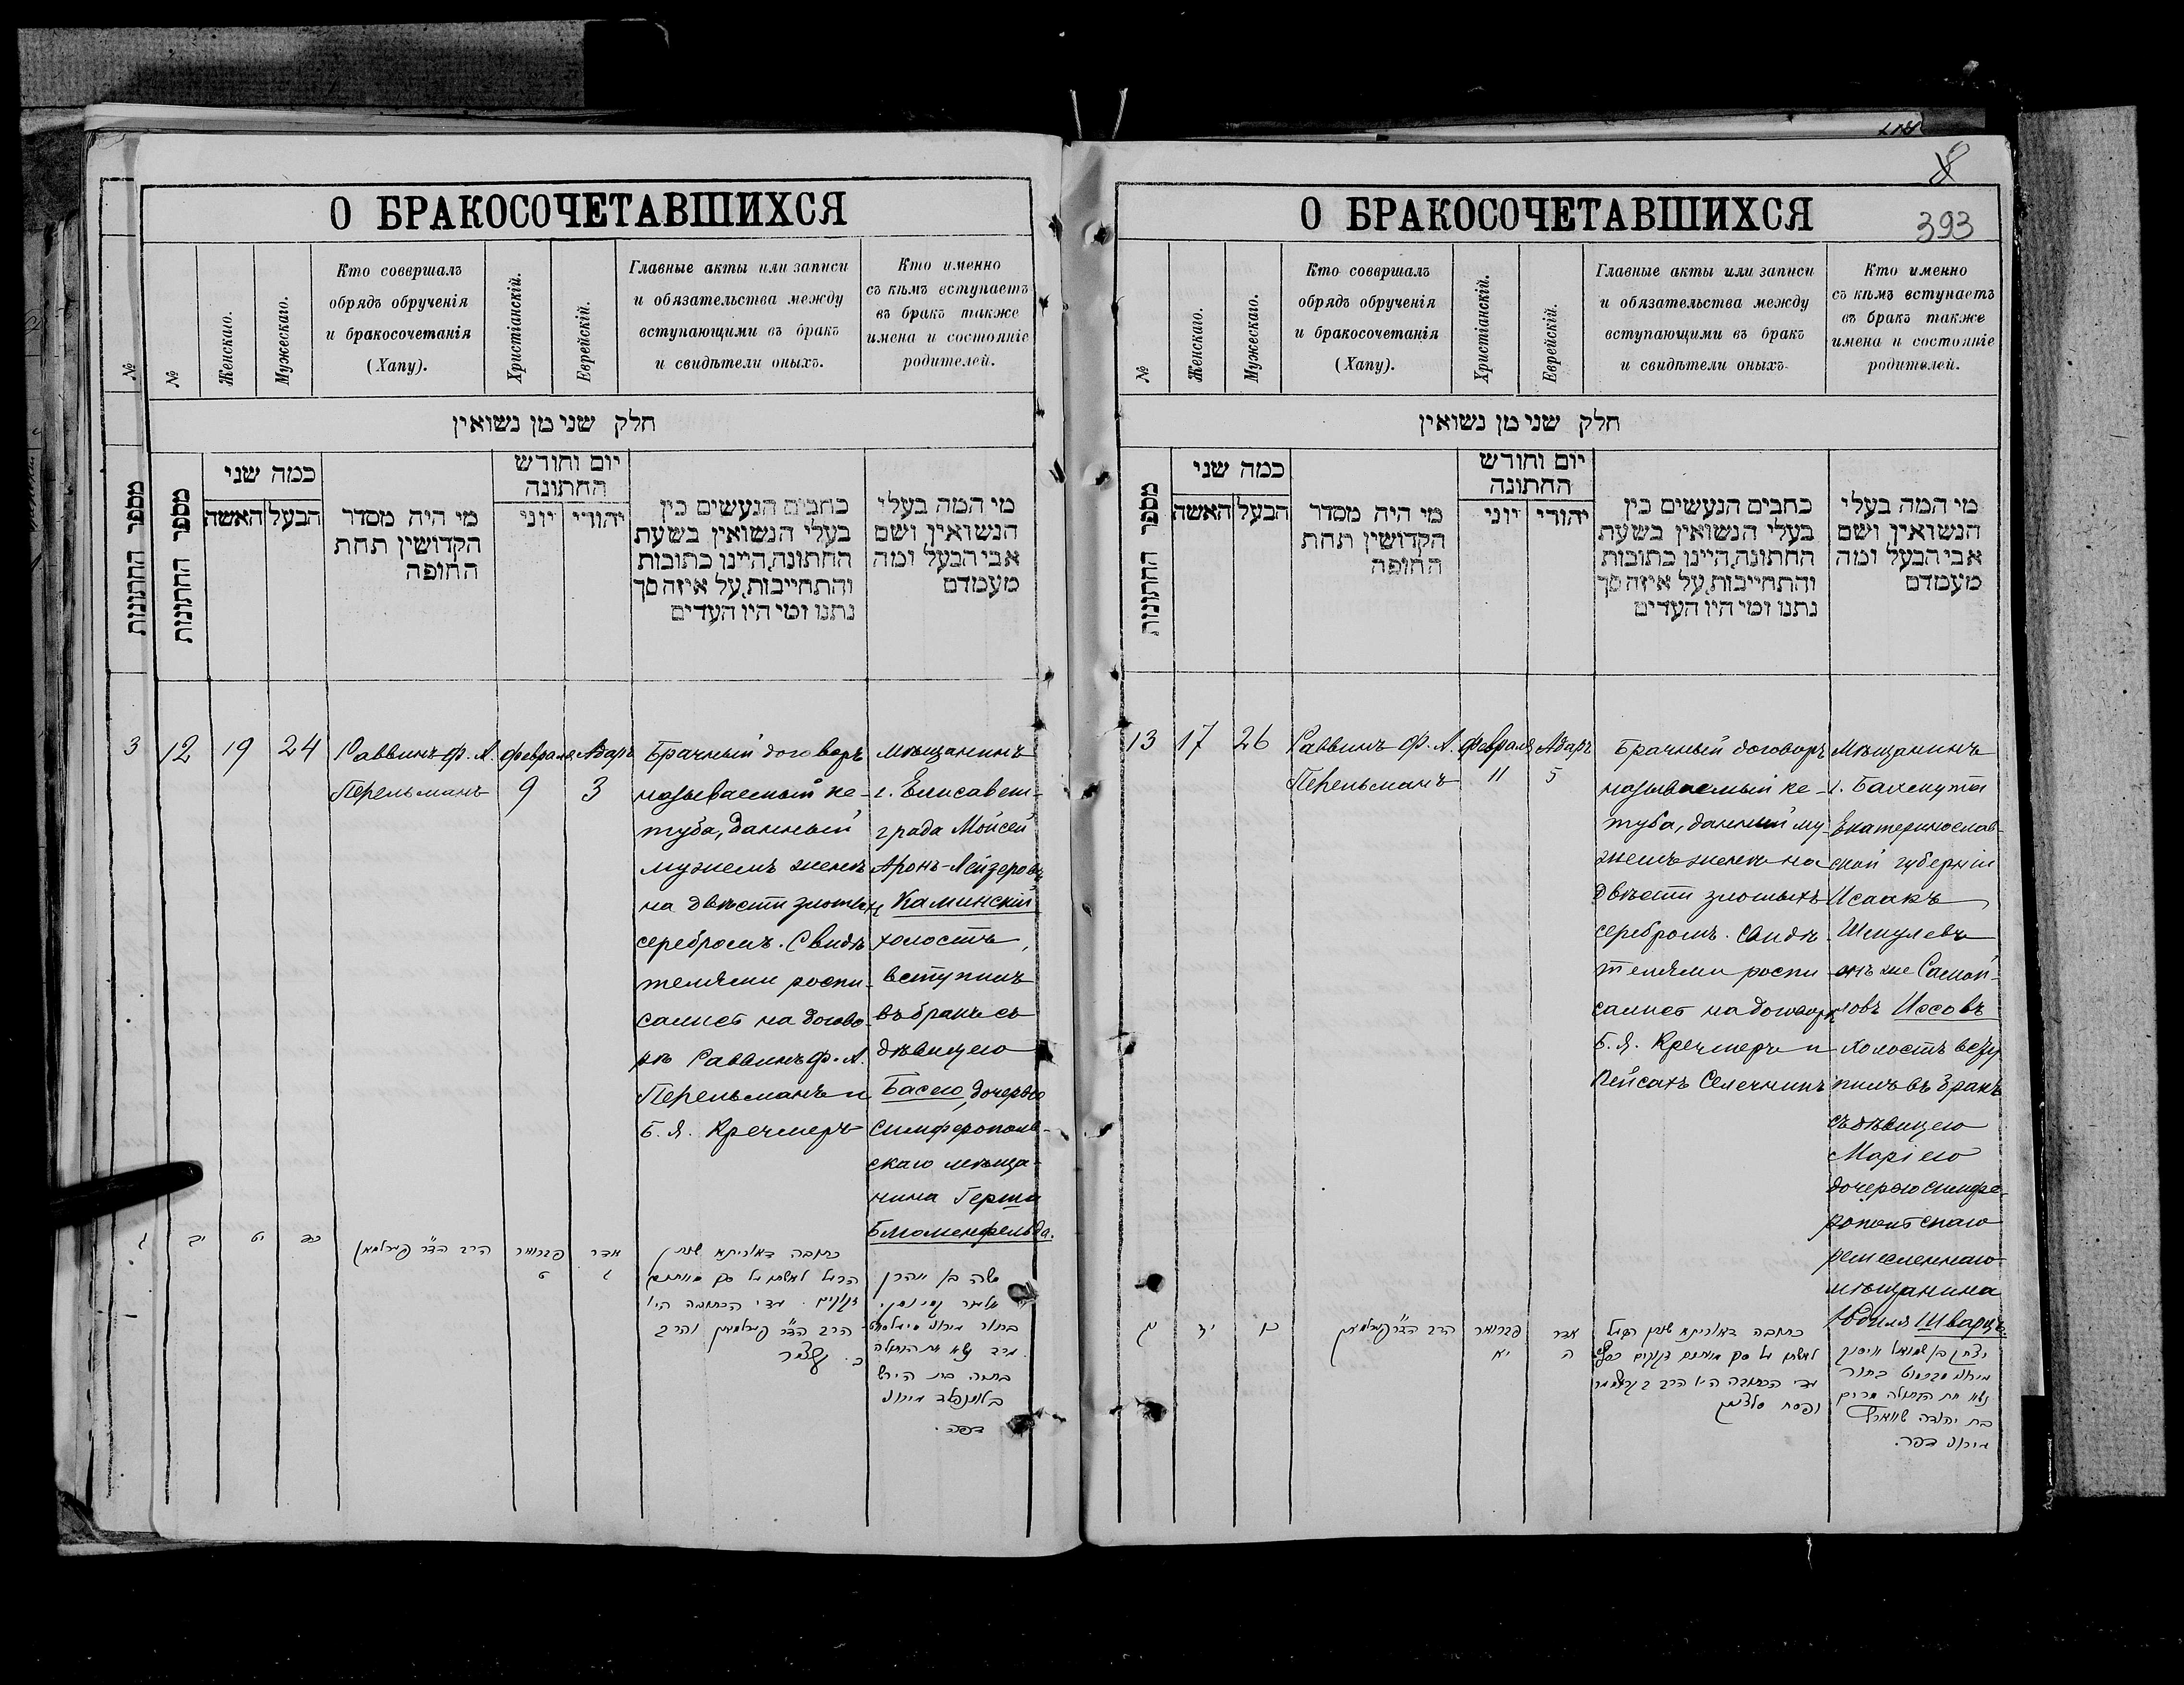 О БРАКОСОЧЕТАВШИХСЯ
№
№
Женскаго.
Мужескаго.
Кто совершалъ
обрядъ обрученія
и бракосочетанія
(Хапу).
Христіанскій.
Еврейскій.
Главные акты или записи
и обязательства между
вступающими въ бракъ
и свидѣтели оныхъ.
Кто именно
съ кѣмъ вступаетъ
въ бракъ также
имена и состояніе
родителей.
חלק שני מן נשואין
מספר החתונות
מספר החתונות
כמה שני
האשה
הבעל
מי היה מסדר
הקדושין תחת
החופה
יום וחודש
החתונה
יוני
יהודי
כתבים הנעשים בין
בעלי הנשואין בשעת
החתונה, היינו כתובות
והתחייבות, על איזה סך
נתנו ומי היו העדים
מי המה בעלי
הנשואין ושם
אבי הבעל ומה
מעמדם
3
12
19
24
Раввинъ Ф. А.
Перельманъ
Февраля
9
Адаръ
3
Брачный договоръ
называемый ке-
туба, данный
мужемъ женѣ
на двѣсти злотыхъ
серебромъ. Свидѣ
телями роспи-
сались на догово-
рѣ Раввинъ Ф. А.
Перельманъ и
Б. Я. Кречмеръ
Мѣщанинъ
г. Елисавет-
града Мойсей
Аронъ-Лейзеровъ
Каминскій
холостъ,
вступилъ
въ бракъ съ
дѣвицею
Басею, дочерью
Симферополь-
скаго мѣща-
нина Герша
Блюменфельда.
ג
יב
יט
כד
הרב הד״ר פערלמאן
פברואר
ט
אדר
ג
כתובה דאוריתא שנתן
הבעל לאשתו על סך מאתים
זקוקים. עדי הכתובה היו
הרב הד״ר פערלמאן והרב
משה בן אהרן
בתור
נשא את הבתולה
בת הירש
דפה.
О БРАКОСОЧЕТАВШИХСЯ
8
393
№
Женскаго.
Мужескаго.
Кто совершалъ
обрядъ обрученія
и бракосочетанія
(Хапу).
Христіанскій.
Еврейскій.
Главные акты или записи
и обязательства между
вступающими въ бракъ
и свидѣтели оныхъ.
Кто именно
съ кѣмъ вступаетъ
въ бракъ также
имена и состояніе
родителей.
חלק שני מן נשואין
מספר החתונות
כמה שני
האשה
הבעל
מי היה מסדר
הקדושין תחת
החופה
יום וחודש
החתונה
יוני
יהודי
כתבים הנעשים בין
בעלי הנשואין בשעת
החתונה, היינו כתובות
והתחייבות, על איזה סך
נתנו ומי היו העדים
מי המה בעלי
הנשואין ושם
אבי הבעל ומה
מעמדם
13
17
26
Раввинъ Ф. А.
Перельманъ
Февраля
11
Адаръ
5
Брачный договоръ
называемый ке-
туба, данный му-
жемъ женѣ на
двѣсти злотыхъ
серебромъ. Свидѣ-
телями роспи
сались на договорѣ
Б. Я. Кречмеръ и
Пейсахъ Селечникъ
Мѣщанинъ
г. Бахмута
Екатеринослав-
ской губерніи
Исаакъ
Шмулевъ
онъ же Самой-
ловъ Иосовъ
холостъ всту
пилъ въ бракъ
съ дѣвицею
Маріею
дочерью Симфе-
ропольскаго
ремесленнаго
мѣщанина
Юдиля Шварцъ.
יג
יז
כו
הרב הד״ר פערלמאן
פברואר
יא
אדר
ה
כתובה דאוריתא שנתן הבעל
לאשתו על סך מאתים זקוקים כסף
עדי הכתובה היו הרב
ופסח
יצחק בן שמואל
בתור
נשא את הבתולה מרים
בת יהודה שווארץ
דפה.